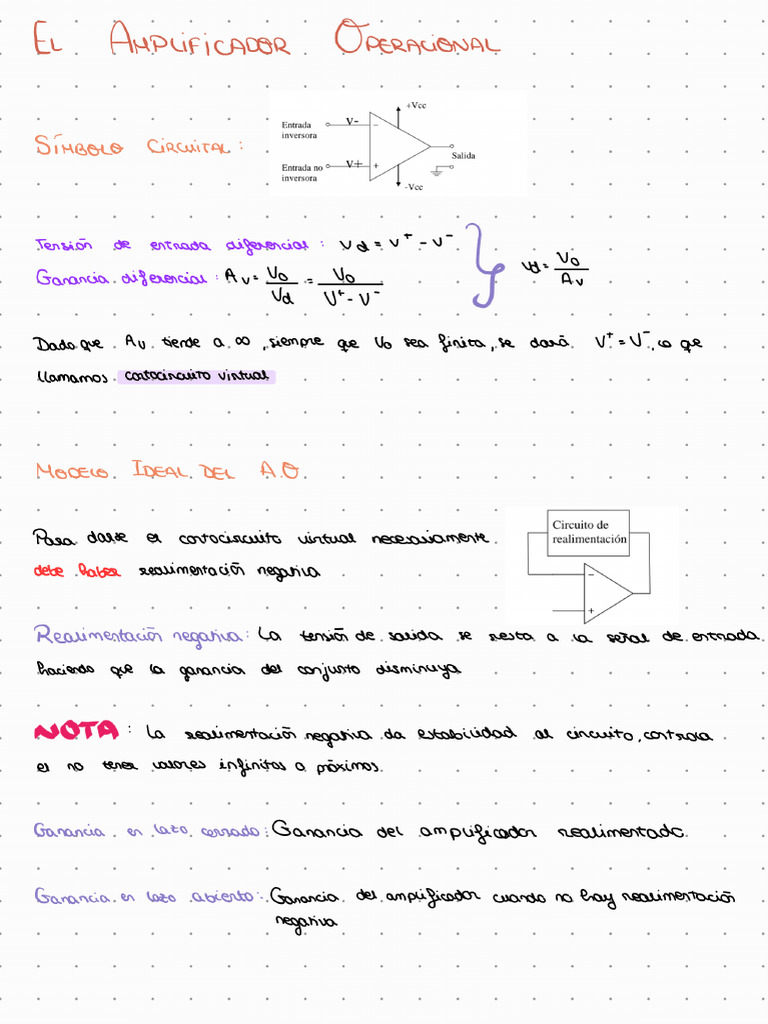 EL AMPLIFICADOR OPERACIONAL
SÍMBOLO CIRCUITAL:
+Vcc
Entrada inversora V- -
Entrada no inversora V+ +
Salida
-Vcc
Tensión de entrada diferencial: Vd = V⁺ - V⁻
Ganancia diferencial: Av = Vo/Vd = Vo/(V⁺ - V⁻)
Vd = Vo/Av
Dado que Av tiende a ∞, siempre que Vo sea finita, se dará V⁺ = V⁻, lo que
llamamos cortocircuito virtual
MODELO IDEAL DEL A.O.
Para darse el cortocircuito virtual necesariamente
debe haber realimentación negativa
Circuito de
realimentación
-
+
Realimentación negativa: La tensión de salida se resta a la señal de entrada
haciendo que la ganancia del conjunto disminuya
NOTA: La realimentación negativa da estabilidad al circuito, controla
el no tener valores infinitos o próximos.
Ganancia en lazo cerrado: Ganancia del amplificador realimentado.
Ganancia en lazo abierto: Ganancia del amplificador cuando no hay realimentación
negativa